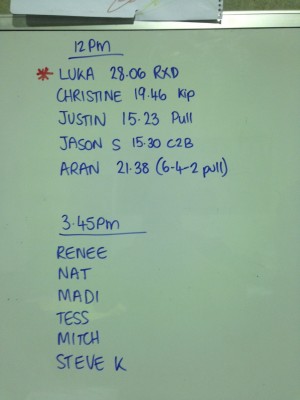 12pm
* LUKA 28.06 RXD
CHRISTINE 19.46 Kip
JUSTIN 15.23 Pull
JASON S 15.30 C2B
ARAN 21.38 (6-4-2 pull)
3.45pm
RENEE
NAT
MADI
TESS
MITCH
STEVE K